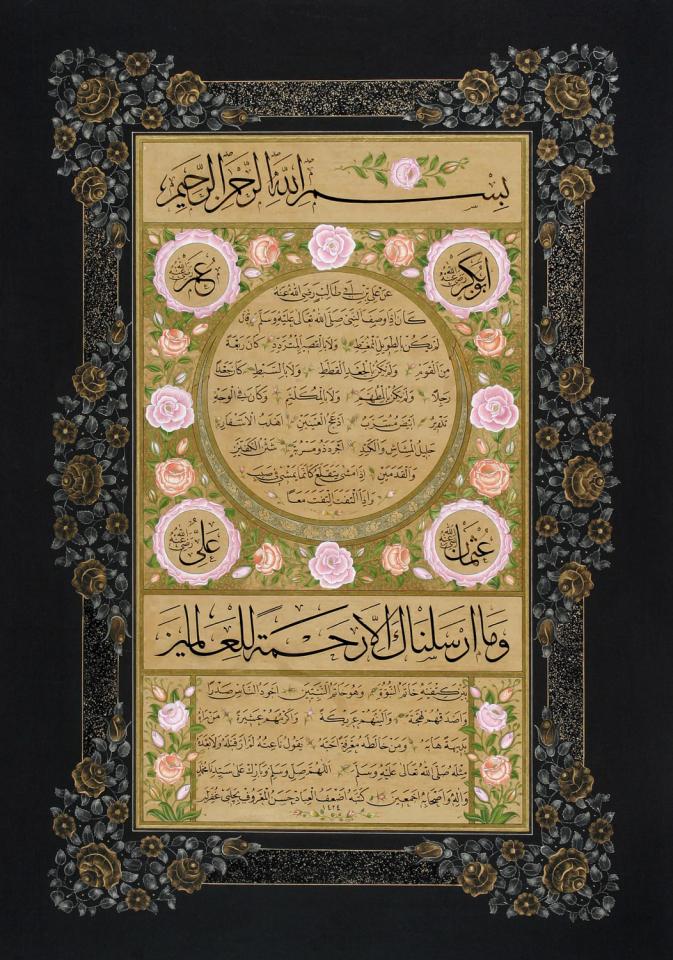 بسم الله الرحمن الرحيم
ابو بكر رضي الله عنه
عمر رضي الله عنه
عن علي بن ابي طالب رضي الله عنه
كان اذا وصف النبي صلى الله تعالى عليه وسلم قال
لم يكن بالطويل الممغط ولا بالقصير المتردد كان ربعة
من القوم ولم يكن بالجعد القطط ولا بالسبط كان جعدا
رجلا ولم يكن بالمطهم ولا بالمكلثم وكان في الوجه
تدوير ابيض مشرب ادعج العينين اهدب الاشفار
جليل المشاش والكتد اجرد ذو مسربة شثن الكفين
والقدمين اذا مشى يتقلع كانما يمشي في صبب
واذا التفت التفت معا
عثمان رضي الله عنه
علي رضي الله عنه
وما ارسلناك الا رحمة للعالمين
بين كتفيه خاتم النبوة وهو خاتم النبيين اجود الناس صدرا
واصدقهم لهجة والينهم عريكة واكرمهم عشيرة من رآه
بديهة هابه ومن خالطه معرفة احبه يقول ناعته لم ار قبله ولا بعده
مثله صلى الله تعالى عليه وسلم اللهم صل وسلم وبارك على سيدنا محمد
وآله واصحابه اجمعين كتبه اضعف العباد حسن المعروف بچلبي غفر له
١٤٢٤